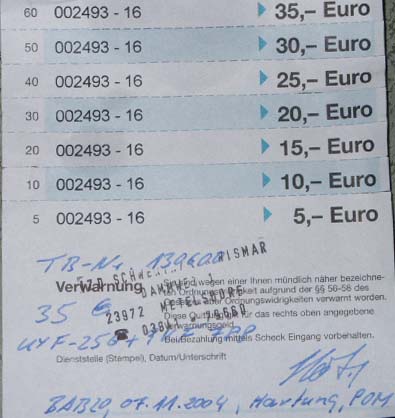 60 002493 - 16 35,– Euro
50 002493 - 16 30,– Euro
40 002493 - 16 25,– Euro
30 002493 - 16 20,– Euro
20 002493 - 16 15,– Euro
10 002493 - 16 10,– Euro
5 002493 - 16 5,– Euro
TB-Nr.
WISMAR
Verwarnung
Sie sind wegen einer Ihnen mündlich näher bezeichne-
Ordnungswidrigkeit aufgrund der §§ 56-58 des
Ordnungswidrigkeiten verwarnt worden.
DAMMWEG 1
23972 METELSDORF
35 €
Diese Quittung für das rechts oben angegebene
Verwarnungsgeld.
Bei Bezahlung mittels Scheck Eingang vorbehalten.
Dienststelle (Stempel), Datum/Unterschrift
BAB20, 07.11.2004, Hartung, POM